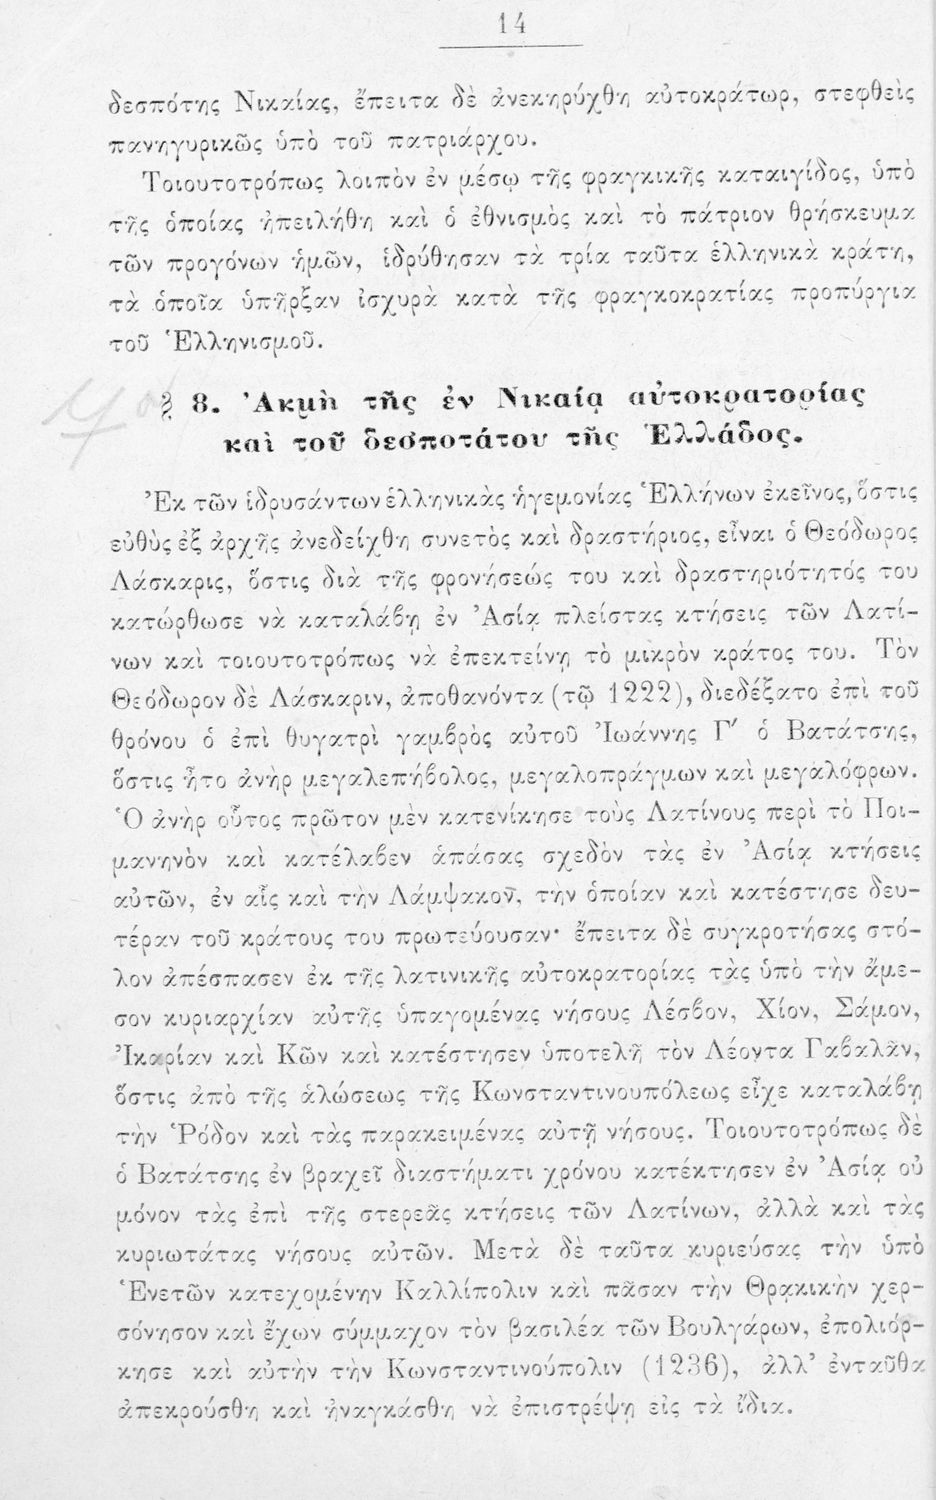 14
δεσπότης Νικαίας, ἔπειτα δὲ ἀνεκηρύχθη αὐτοκράτωρ, στεφθεὶς
πανηγυρικῶς ὑπὸ τοῦ πατριάρχου.
Τοιουτοτρόπως λοιπὸν ἐν μέσῳ τῆς φραγκικῆς καταιγίδος, ὑπὸ
τῆς ὁποίας ἠπειλήθη καὶ ὁ ἐθνισμὸς καὶ τὸ πάτριον θρήσκευμα
τῶν προγόνων ἡμῶν, ἱδρύθησαν τὰ τρία ταῦτα ἑλληνικὰ κράτη,
τὰ ὁποῖα ὑπῆρξαν ἰσχυρὰ κατὰ τῆς φραγκοκρατίας προπύργια
τοῦ Ἑλληνισμοῦ.
§ 8. Ἀκμὴ τῆς ἐν Νικαίᾳ αὐτοκρατορίας
καὶ τοῦ δεσποτάτου τῆς Ἑλλάδος.
Ἐκ τῶν ἱδρυσάντων ἑλληνικὰς ἡγεμονίας Ἑλλήνων ἐκεῖνος, ὅστις
εὐθὺς ἐξ ἀρχῆς ἀνεδείχθη συνετὸς καὶ δραστήριος, εἶναι ὁ Θεόδωρος
Λάσκαρις, ὅστις διὰ τῆς φρονήσεώς του καὶ δραστηριότητός του
κατώρθωσε νὰ καταλάβῃ ἐν Ἀσίᾳ πλείστας κτήσεις τῶν Λατί-
νων καὶ τοιουτοτρόπως νὰ ἐπεκτείνῃ τὸ μικρὸν κράτος του. Τὸν
Θεόδωρον δὲ Λάσκαριν, ἀποθανόντα (τῷ 1222), διεδέξατο ἐπὶ τοῦ
θρόνου ὁ ἐπὶ θυγατρὶ γαμβρὸς αὐτοῦ Ἰωάννης Γ′ ὁ Βατάτσης,
ὅστις ἦτο ἀνὴρ μεγαλεπήβολος, μεγαλοπράγμων καὶ μεγαλόφρων.
Ὁ ἀνὴρ οὗτος πρῶτον μὲν κατενίκησε τοὺς Λατίνους περὶ τὸ Ποι-
μανηνὸν καὶ κατέλαβεν ἁπάσας σχεδὸν τὰς ἐν Ἀσίᾳ κτήσεις
αὐτῶν, ἐν αἷς καὶ τὴν Λάμψακον, τὴν ὁποίαν καὶ κατέστησε δευ-
τέραν τοῦ κράτους του πρωτεύουσαν· ἔπειτα δὲ συγκροτήσας στό-
λον ἀπέσπασεν ἐκ τῆς λατινικῆς αὐτοκρατορίας τὰς ὑπὸ τὴν ἄμε-
σον κυριαρχίαν αὐτῆς ὑπαγομένας νήσους Λέσβον, Χίον, Σάμον,
Ἰκαρίαν καὶ Κῶν καὶ κατέστησεν ὑποτελῆ τὸν Λέοντα Γαβαλᾶν,
ὅστις ἀπὸ τῆς ἁλώσεως τῆς Κωνσταντινουπόλεως εἶχε καταλάβῃ
τὴν Ῥόδον καὶ τὰς παρακειμένας αὐτῇ νήσους. Τοιουτοτρόπως δὲ
ὁ Βατάτσης ἐν βραχεῖ διαστήματι χρόνου κατέκτησεν ἐν Ἀσίᾳ οὐ
μόνον τὰς ἐπὶ τῆς στερεᾶς κτήσεις τῶν Λατίνων, ἀλλὰ καὶ τὰς
κυριωτάτας νήσους αὐτῶν. Μετὰ δὲ ταῦτα κυριεύσας τὴν ὑπὸ
Ἑνετῶν κατεχομένην Καλλίπολιν καὶ πᾶσαν τὴν Θρᾳκικὴν χερ-
σόνησον καὶ ἔχων σύμμαχον τὸν βασιλέα τῶν Βουλγάρων, ἐπολιόρ-
κησε καὶ αὐτὴν τὴν Κωνσταντινούπολιν (1236), ἀλλ' ἐνταῦθα
ἀπεκρούσθη καὶ ἠναγκάσθη νὰ ἐπιστρέψῃ εἰς τὰ ἴδια.